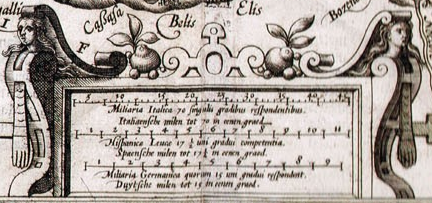 Cassasa
Belis
Elis
I
F
5 10 15 20 25 30 35 40 45
Miliaria Italica 70 singulis gradibus respondentibus.
Italiaensche milen tot 70 in eenen graed.
1 2 3 4 5 6 7 8 9 10 11
Hispanica Leuca 17 ½ uni gradui competentia.
Spaensche milen tot 17 ½ in eenen graed.
1 2 3 4 5 6 7 8 9
Miliaria Germanica quorum 15 uni gradui respondent.
Duytsche milen tot 15 in eenen graed.